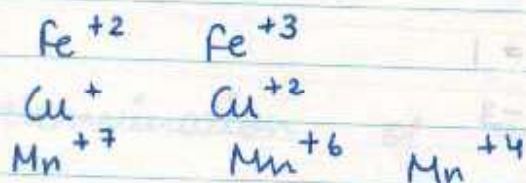 Fe⁺² Fe⁺³
Cu⁺ Cu⁺²
Mn⁺⁷ Mn⁺⁶ Mn⁺⁴